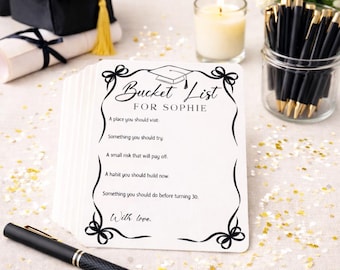 Bucket List
FOR SOPHIE
A place you should visit.
Something you should try.
A small risk that will pay off.
A habit you should build now.
Something you should do before turning 30.
With love,